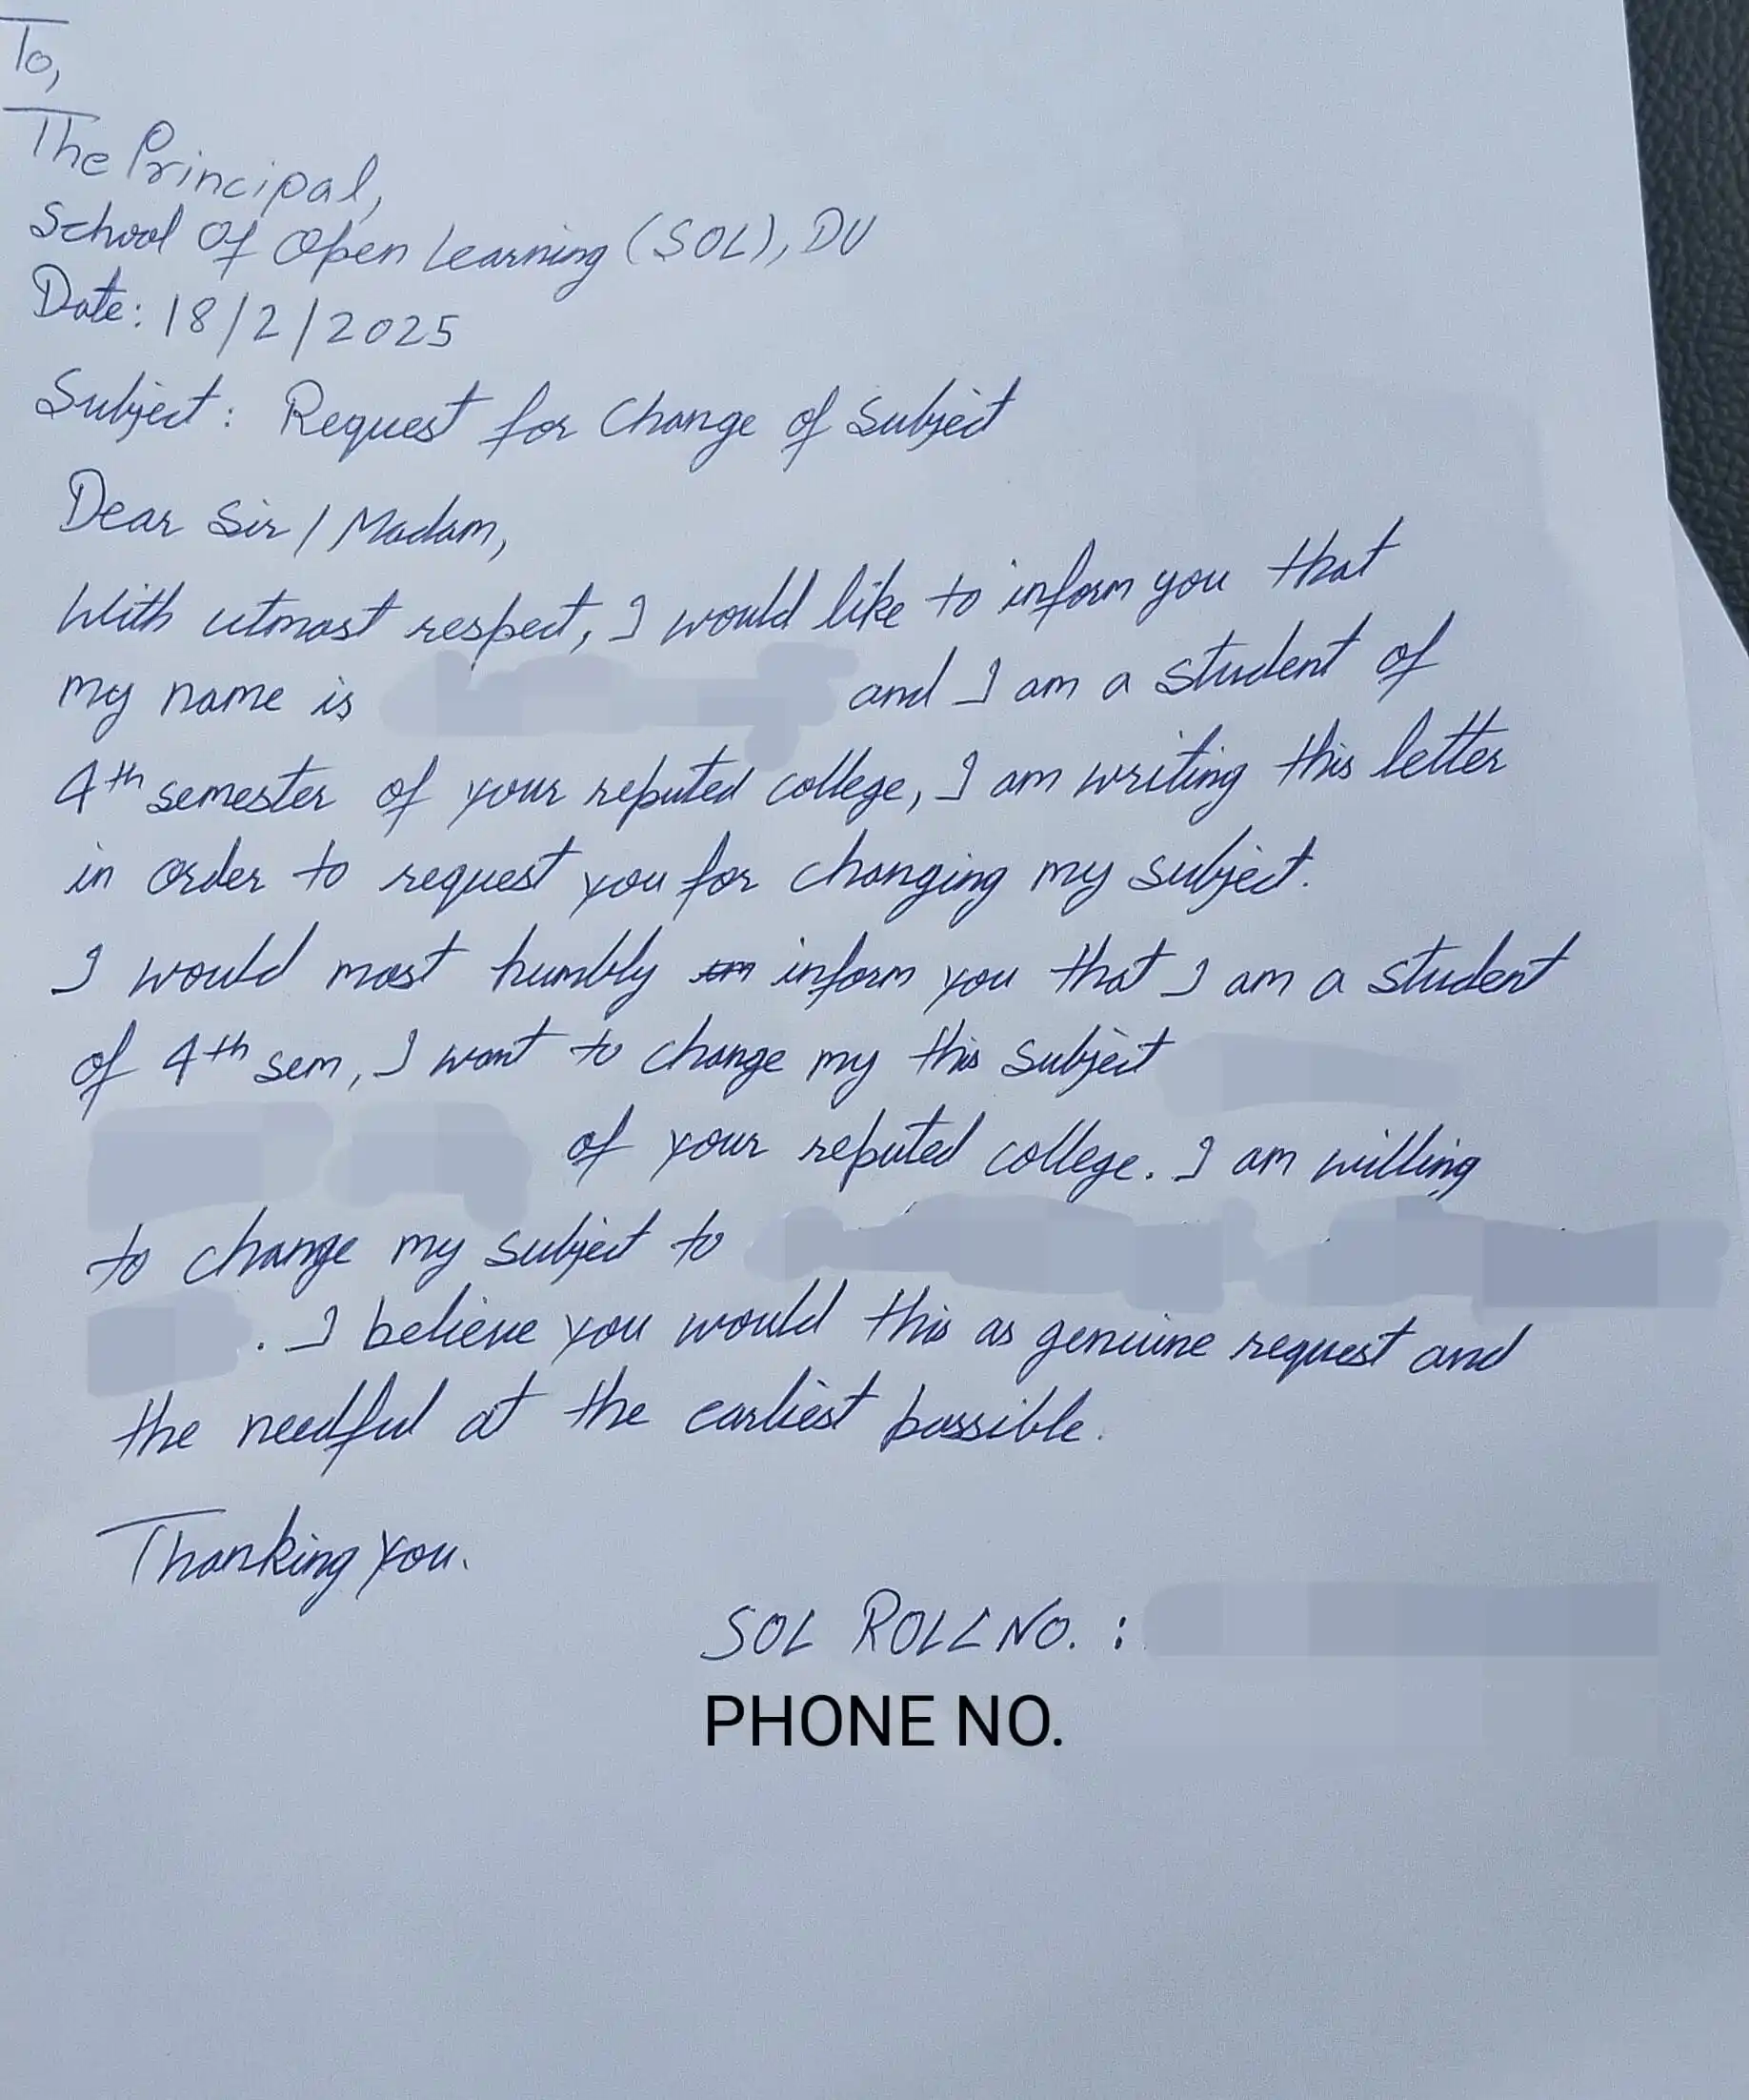 To,
The Principal,
School Of Open Learning (SOL), DU
Date: 18/2/2025
Subject: Request for Change of Subject
Dear Sir / Madam,
With utmost respect, I would like to inform you that
my name is and I am a student of
4th semester of your reputed college, I am writing this letter
in order to request you for changing my subject.
I would most humbly inform you that I am a student
of 4th sem, I want to change my this subject
of your reputed college. I am willing
to change my subject to
. I believe you would this as genuine request and
the needful at the earliest possible.
Thanking You.
SOL ROLL NO. :
PHONE NO.